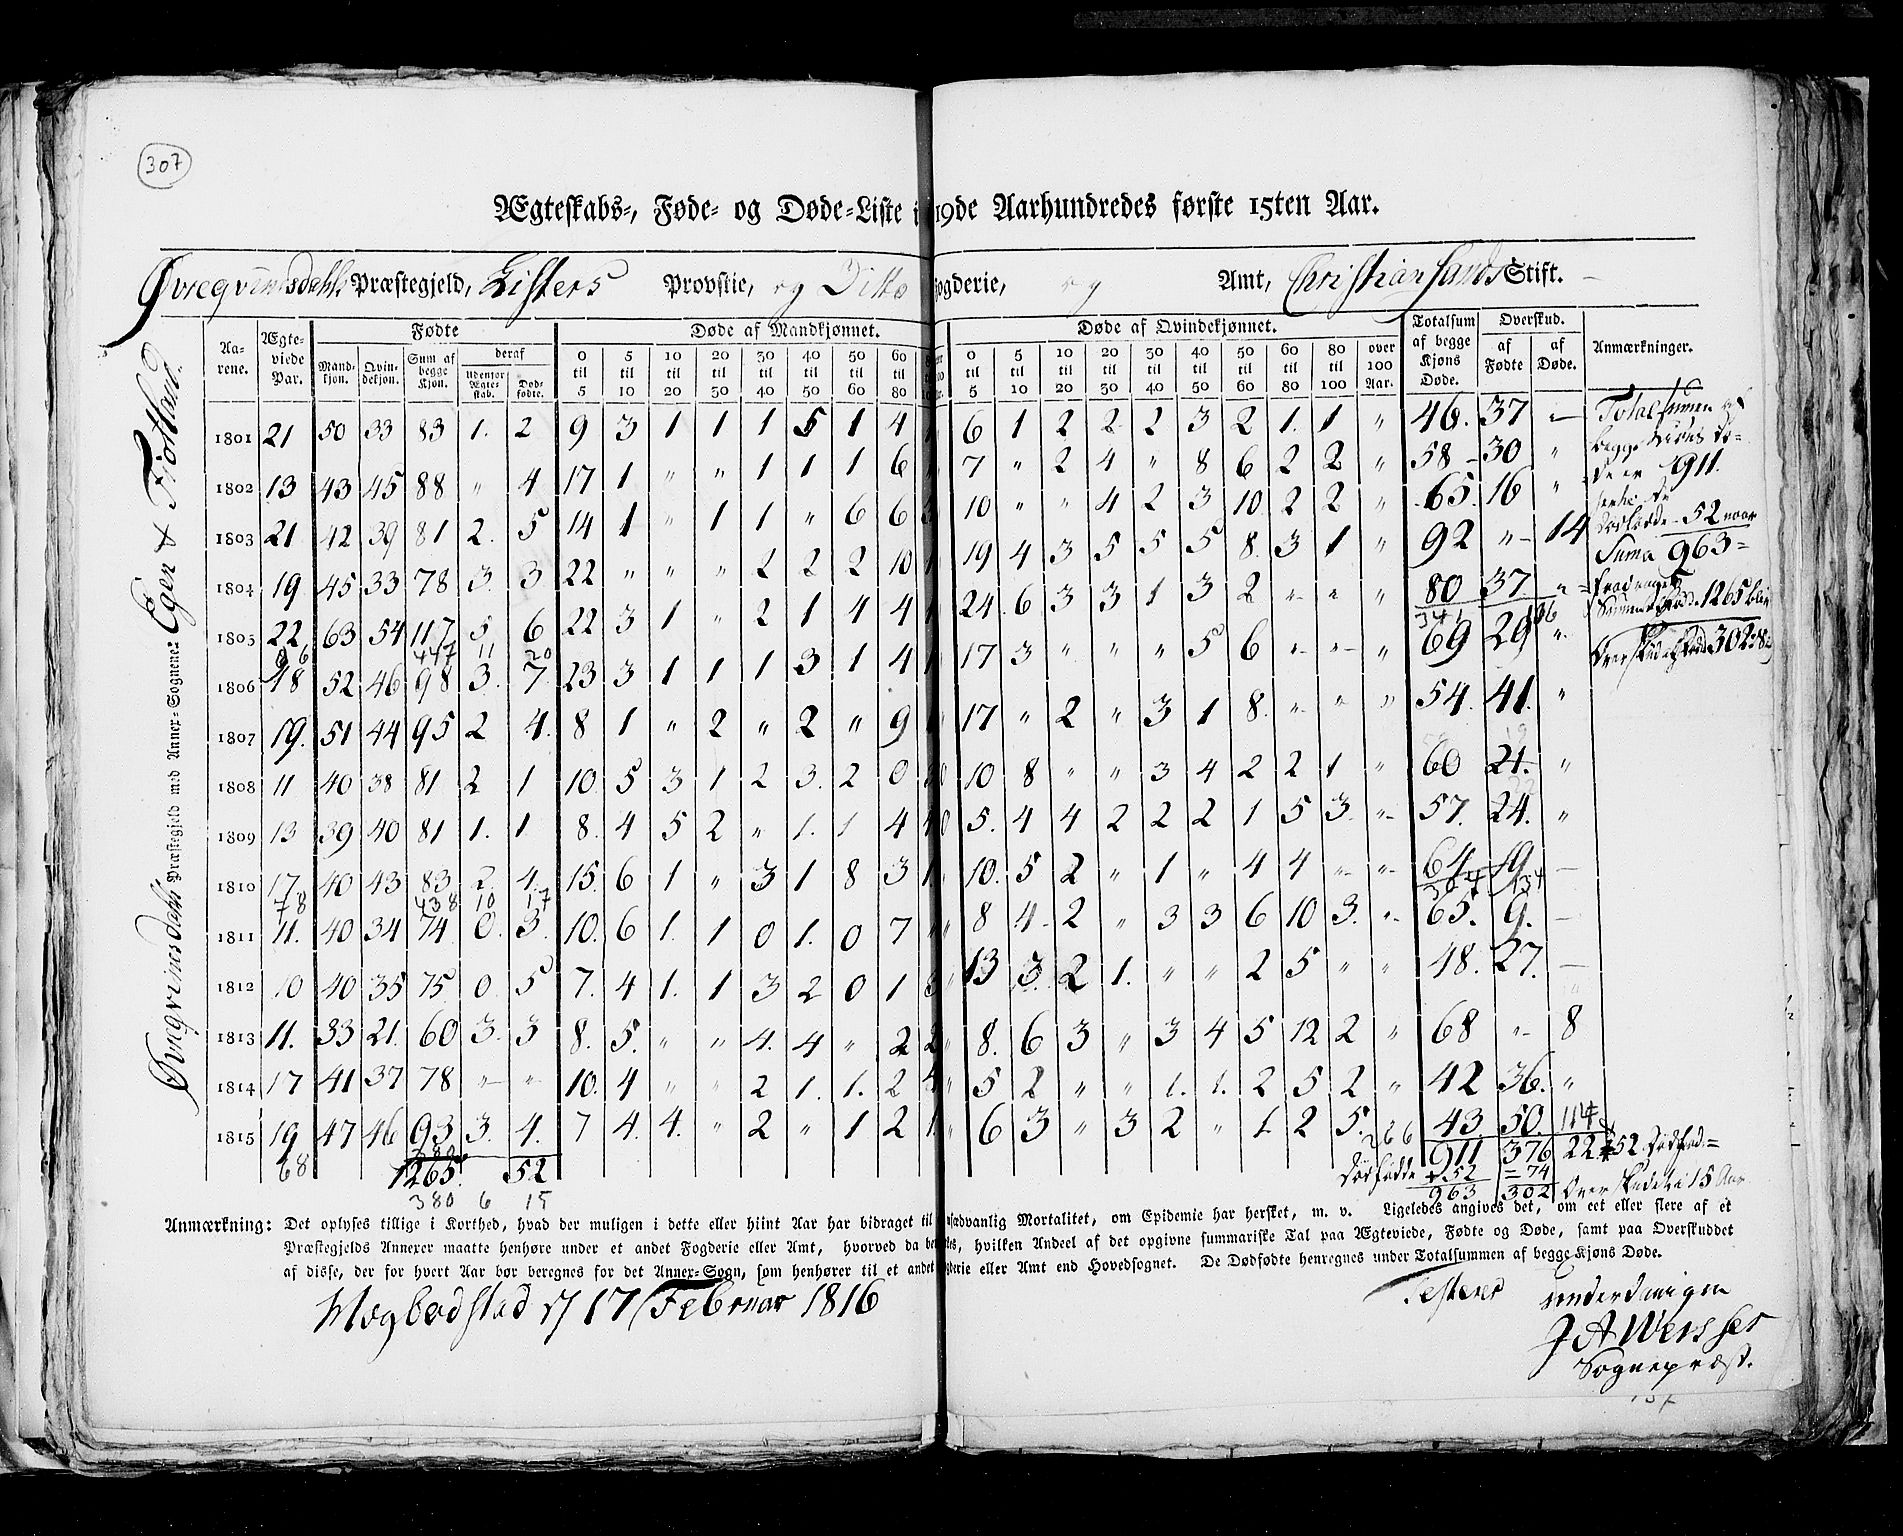 307
Ægteskabs-, Føde- og Døde-Liste i 19de Aarhundredes første 15ten Aar.
Øvreqvinesdahls Præstegjeld, Listers Provstie, og Ditto Fogderie, og Amt, Christiansands Stift.
Øvreqvinesdahls Præstegjeld med Annex-Sognene: Egen & Fiotland.
Aarene. Ægteviede Par. Fødte Døde af Mandkjønnet. Døde af Qvindekjønnet. Totalsum af begge Kjøns Døde. Overskud. Anmærkninger.
Mandkjøn. Qvindekjøn. Sum af begge Kjøn. deraf udenfor Ægtestab. Dødfødte. af Fødte af Døde.
0 til 5 5 til 10 10 til 20 20 til 30 30 til 40 40 til 50 50 til 60 60 til 80
0 til 5 5 til 10 10 til 20 20 til 30 30 til 40 40 til 50 50 til 60 60 til 80 80 til 100 over 100 Aar.
1801 21 50 33 83 1. 2 9 3 1 1 1 5 1 4 6 1 2 2 2 3 2 1. 1 " 46. 37 —
1802 13 43 45 88 " 4 17 1 " " 1 1 1 6 7 " 2 4 " 8 6 2 2 " 58 30 "
1803 21 42 39 81 2. 5 14 1 " 1 1 " 6 6 10 " " 4 2 3 10 2 2 " 65. 16 "
1804 19 45 33 78 3. 3 22 " " " 2 2 2 10 19 4 3 5 5 5 8. 3 1 " 92 " 14
1805 22 63 54 117 5 6 22 3 1 " 2 1 4 4 24. 6 3 3 1 3 2 " " " 80 37. "
447 11 20 341
1806 18 52 46 98 3. 7 23 3 1 1 1 3 1 4 17 3 " " " 5 6 " " " 69 29 "
1807 19. 51 44 95 2 4. 8 1 " 2 " 2 " 9 17 " 2 " 3 1 8. " " " 54. 41. "
1808 11 40 38 81 2 1 10. 5 3 1 2 3. 2 0 10 8 " " 3 4 2 2 1 " 60 21. "
1809 13 39 40 81 1. 1 8. 4 5 2 " 1. 1 4 5. 4 4 2 2 2 1 5 3. " 57. 24. "
1810 17 40 43 83 2. 4. 15. 6 1 " 3 1 8 3 10. 5 2 " 1 " 4 4 " " 64 19 —
78 438 10 17 134
1811 11. 40 34 74 0. 3. 10. 6 1. 1 0 1. 0 7 8 4 2 " 3 3 6 10 3. " 65. 9. —
1812 10 40 35 75. 0. 5 7. 4 1. 1 3 2 0 1 13 3 2 1. " " 2 5 " " 48. 27. —
1813 11. 33 21. 60 3. 3 8. 5. " " 4. 4 " 2 8. 6 3 " 3 4 5 12 2 " 68 " 8
1814 17 41 37 78 " " 10. 4 " " 2 1. 1. 2 5 2 " " 1. 1. 2 5 2 " 42 36. "
1815 19 47 46 93 3. 4. 7 4. 4. " 2 " 1 2 6 3 " 3 2 " 1. 2 5. 43 50. 114
68 1265 52 266 911 376 22 + 52 Dødfød=
380 6 15
Dødfødde + 52 = 74
963 302 Overskudet i 15 Aar
Totalsumen af
begge Kiøns Dø=
de er 911.
Dødfødde 52
Suma 963=
1265
302
Anmærkning: Det oplyses tillige i Korthed, hvad der muligen i dette eller hiint Aar har bidraget til usædvanlig Mortalitet, om Epidemie har hersket, m. v. Ligeledes angives det, om eet eller flere af et
Præstegjelds Annexer maatte henhøre under et andet Fogderie eller Amt, hvorved da bemærkes, hvilken Andeel af det opgivne summariske Tal paa Ægteviede, Fødte og Døde, samt paa Overskuddet
af disse, der for hvert Aar bør beregnes for det Annex-Sogn, som henhører til et andet Fogderie eller Amt end Hovedsognet. De Dødfødte henregnes under Totalsummen af begge Kjøns Døde.
17 Februar 1816
Testerer underdanigen
J A Wersser
Sognepræst.